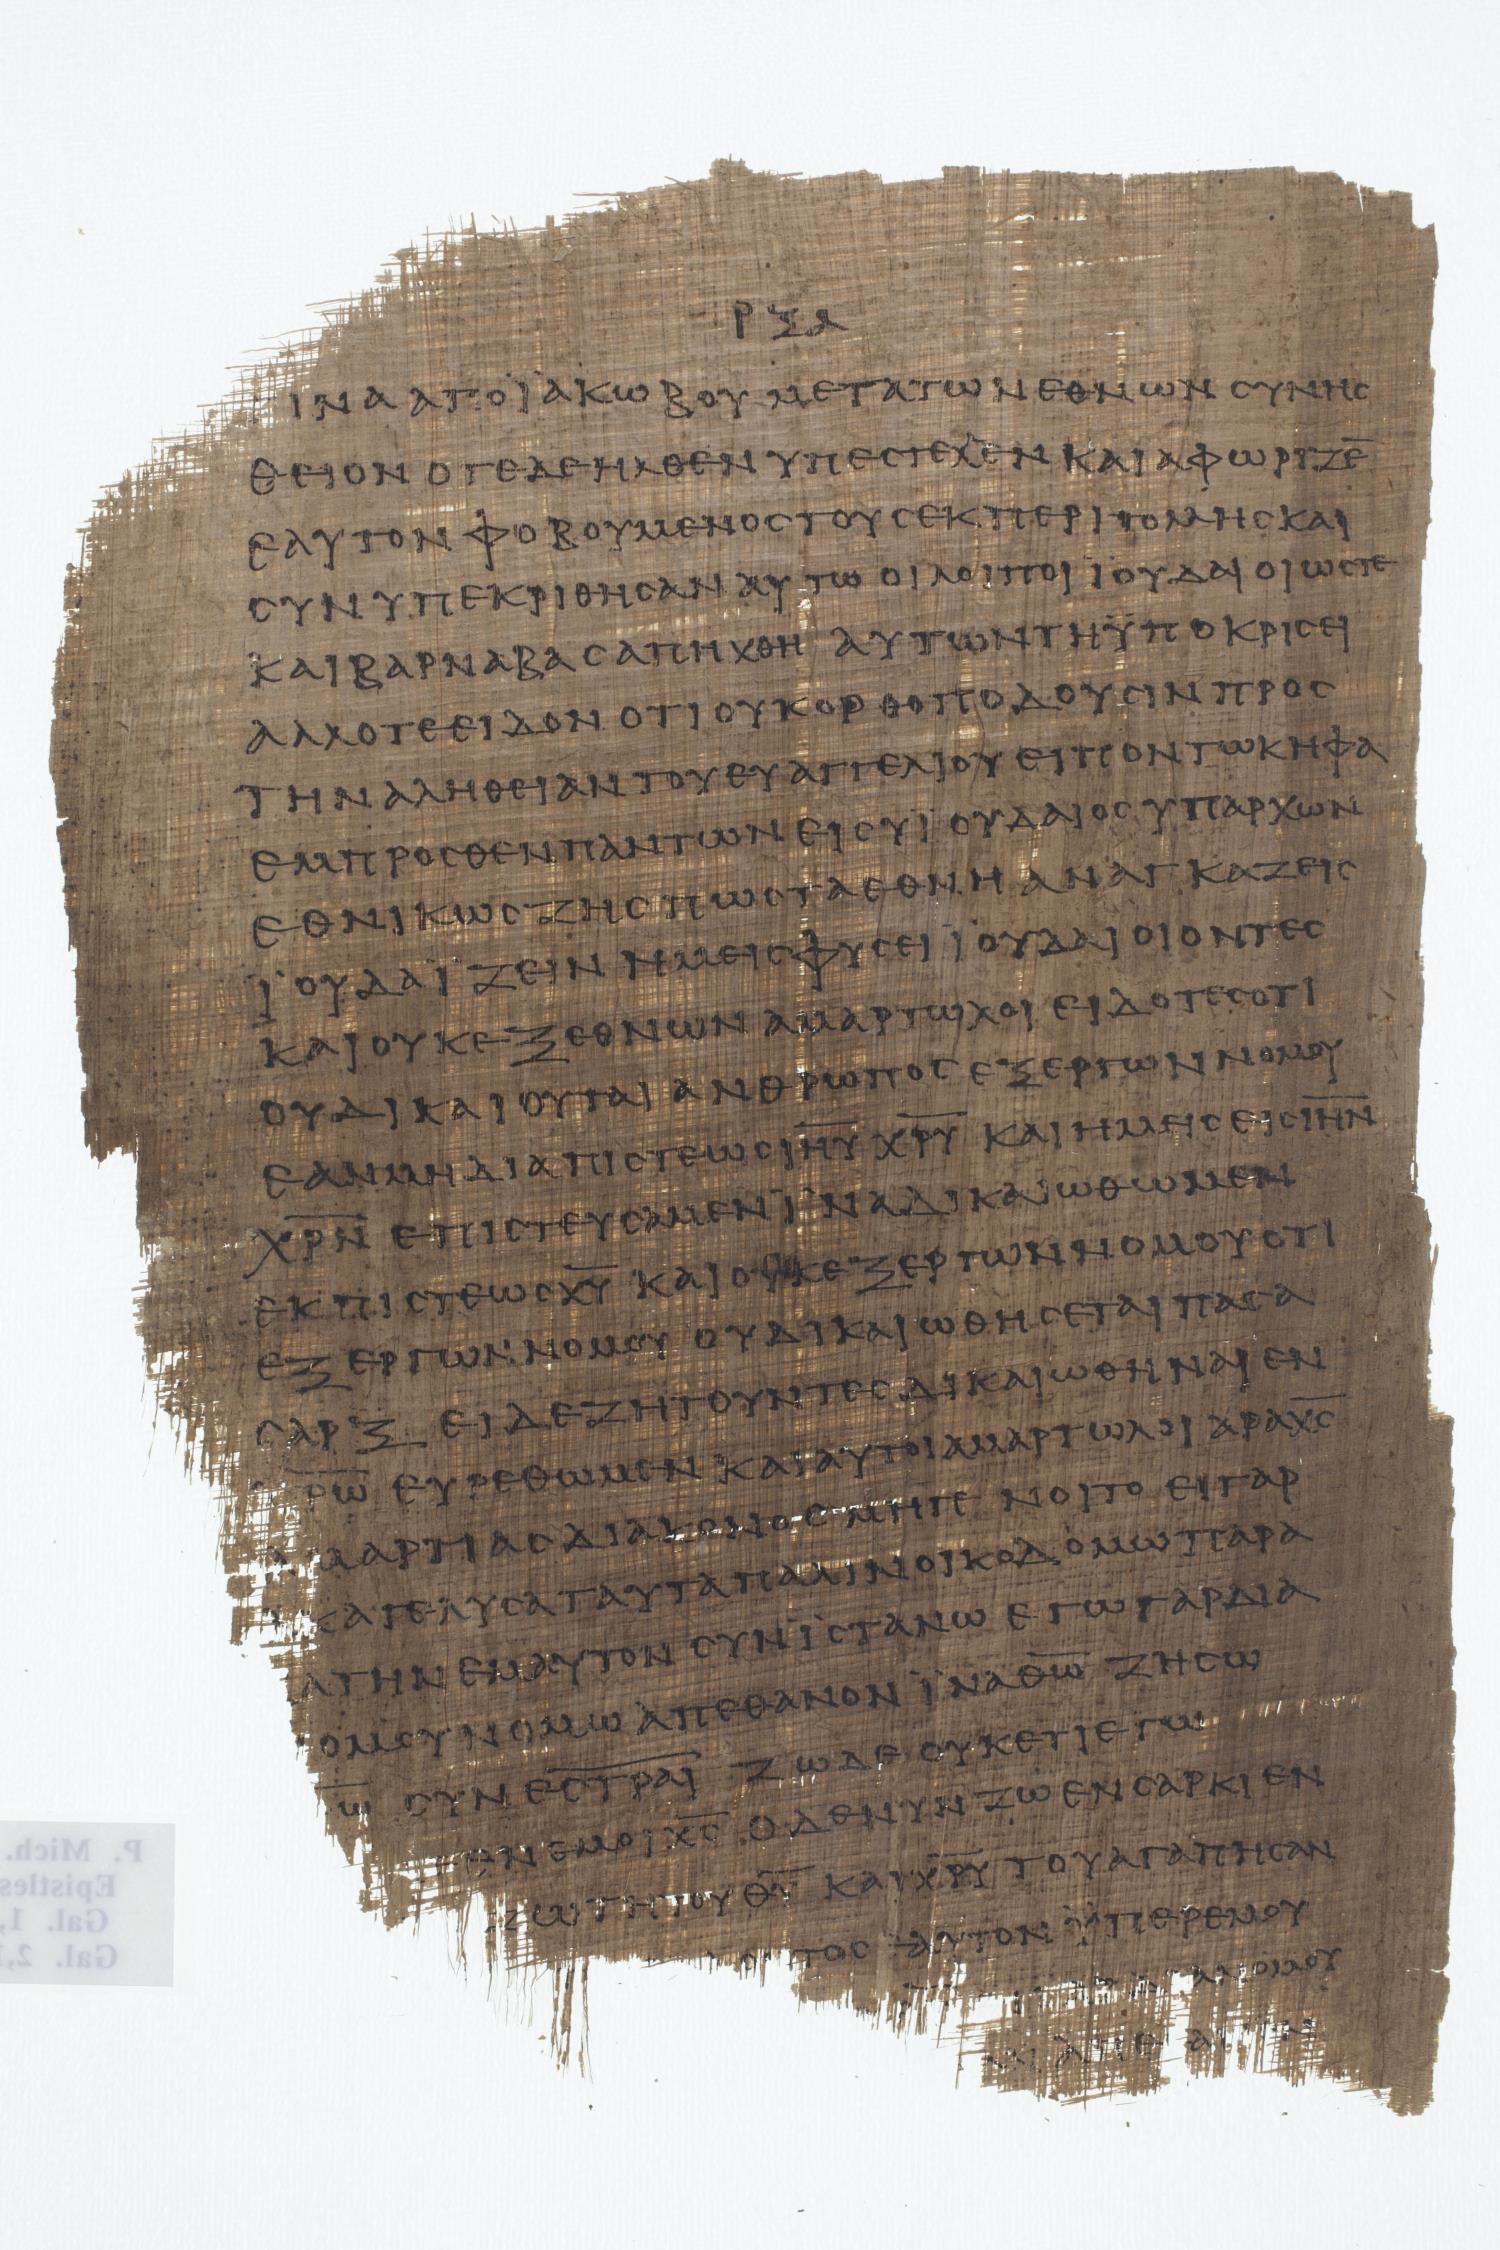 ΡΞΑ
ΤΙΝΑ ΑΠΟ ΪΑΚΩΒΟΥ ΜΕΤΑ ΤΩΝ ΕΘΝΩΝ ΣΥΝΗΣ
ΘΕΙΟΝ ΟΤΕ ΔΕ ΗΛΘΕΝ ΥΠΕΣΤΕΛΛΕΝ ΚΑΙ ΑΦΩΡΙΖΕ̅
ΕΑΥΤΟΝ ΦΟΒΟΥΜΕΝΟΣ ΤΟΥΣ ΕΚ ΠΕΡΙΤΟΜΗΣ ΚΑΙ
ΣΥΝΥΠΕΚΡΙΘΗΣΑΝ ΑΥΤΩ ΟΙ ΛΟΙΠΟΙ ΪΟΥΔΑΙΟΙ ΩΣΤΕ
ΚΑΙ ΒΑΡΝΑΒΑΣ ΑΠΗΧΘΗ ΑΥΤΩΝ ΤΗ ΫΠΟΚΡΙΣΕΙ
ΑΛΛ ΟΤΕ ΕΙΔΟΝ ΟΤΙ ΟΥΚ ΟΡΘΟΠΟΔΟΥΣΙΝ ΠΡΟΣ
ΤΗΝ ΑΛΗΘΕΙΑΝ ΤΟΥ ΕΥΑΓΓΕΛΙΟΥ ΕΙΠΟΝ ΤΩ ΚΗΦΑ
ΕΜΠΡΟΣΘΕΝ ΠΑΝΤΩΝ ΕΙ ΣΥ ΪΟΥΔΑΙΟΣ ΥΠΑΡΧΩΝ
ΕΘΝΙΚΩΣ ΖΗΣ ΠΩΣ ΤΑ ΕΘΝΗ ΑΝΑΓΚΑΖΕΙΣ
ΪΟΥΔΑΪΖΕΙΝ ΗΜΕΙΣ ΦΥΣΕΙ ΪΟΥΔΑΙΟΙ ΟΝΤΕΣ
ΚΑΙ ΟΥΚ ΕΞ ΕΘΝΩΝ ΑΜΑΡΤΩΛΟΙ ΕΙΔΟΤΕΣ ΟΤΙ
ΟΥ ΔΙΚΑΙΟΥΤΑΙ ΑΝΘΡΩΠΟΣ ΕΞ ΕΡΓΩΝ ΝΟΜΟΥ
ΕΑΝ ΜΗ ΔΙΑ ΠΙΣΤΕΩΣ Ι̅Η̅Υ̅ Χ̅Ρ̅Υ̅ ΚΑΙ ΗΜΕΙΣ ΕΙΣ Ι̅Η̅Ν̅
Χ̅Ρ̅Ν̅ ΕΠΙΣΤΕΥΣΑΜΕΝ ΪΝΑ ΔΙΚΑΙΩΘΩΜΕΝ
ΕΚ ΠΙΣΤΕΩΣ Χ̅Υ̅ ΚΑΙ ΟΥΚ ΕΞ ΕΡΓΩΝ ΝΟΜΟΥ ΟΤΙ
ΕΞ ΕΡΓΩΝ ΝΟΜΟΥ ΟΥ ΔΙΚΑΙΩΘΗΣΕΤΑΙ ΠΑΣΑ
ΣΑΡΞ ΕΙ ΔΕ ΖΗΤΟΥΝΤΕΣ ΔΙΚΑΙΩΘΗΝΑΙ ΕΝ
Ρ̅Ω̅ ΕΥΡΕΘΩΜΕΝ ΚΑΙ ΑΥΤΟΙ ΑΜΑΡΤΩΛΟΙ ΑΡΑ Χ̅Σ̅
ΜΑΡΤΙΑΣ ΔΙΑΚΟΝΟΣ ΜΗ ΓΕΝΟΙΤΟ ΕΙ ΓΑΡ
ΚΑΤΕΛΥΣΑ ΤΑΥΤΑ ΠΑΛΙΝ ΟΙΚΟΔΟΜΩ ΠΑΡΑ
ΑΤΗΝ ΕΜΑΥΤΟΝ ΣΥΝΪΣΤΑΝΩ ΕΓΩ ΓΑΡ ΔΙΑ
ΟΜΟΥ ΝΟΜΩ ΑΠΕΘΑΝΟΝ ΪΝΑ Θ̅Ω̅ ΖΗΣΩ
Ω̅ ΣΥΝΕΣ̅Τ̅Ρ̅ΑΙ ΖΩ ΔΕ ΟΥΚΕΤΙ ΕΓΩ
ΕΝ ΕΜΟΙ Χ̅Σ̅ Ο ΔΕ ΝΥΝ ΖΩ ΕΝ ΣΑΡΚΙ ΕΝ
ΖΩ ΤΗ ΤΟΥ Θ̅Υ̅ ΚΑΙ Χ̅Ρ̅Υ̅ ΤΟΥ ΑΓΑΠΗΣΑΝ
ΤΟΣ ΕΑΥΤΟΝ ΫΠΕΡ ΕΜΟΥ
ΝΟΜΟΥ
P. Mich.
Epistles
Gal. 1,
Gal. 2,